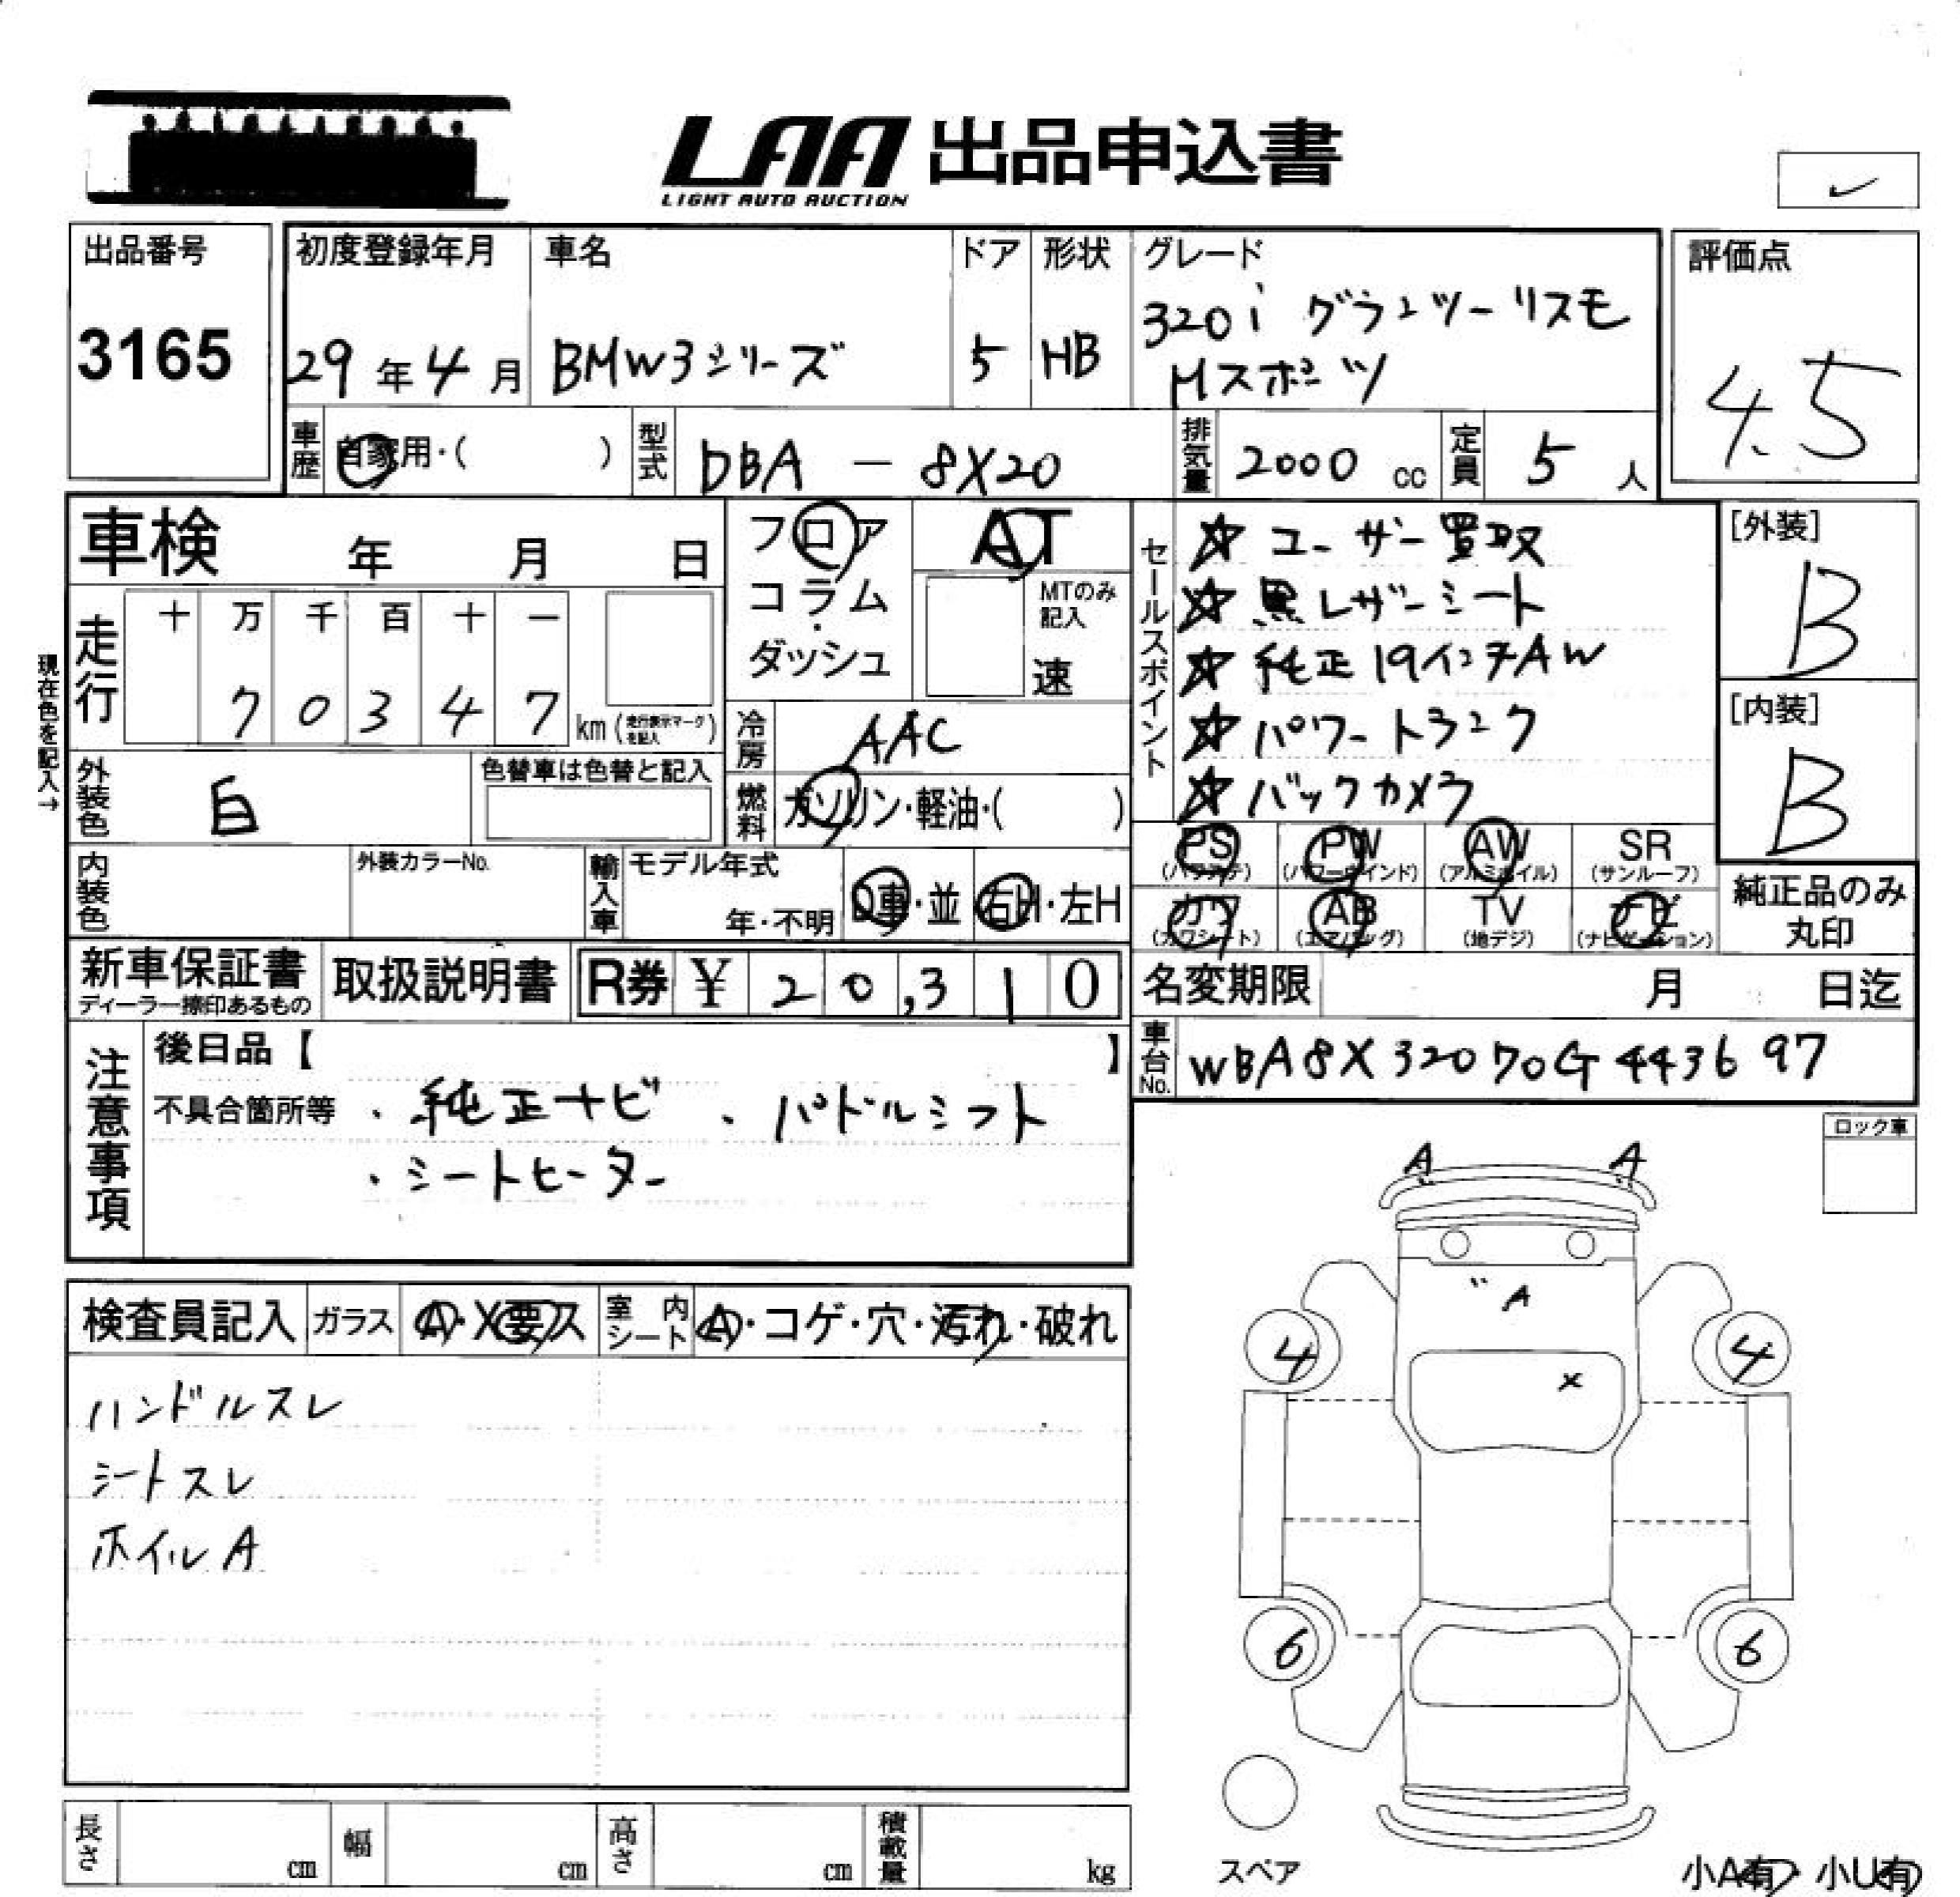 LAA 出品申込書
LIGHT AUTO AUCTION
出品番号
3165
初度登録年月
29年4月
車名
BMW3シリーズ
ドア
5
形状
HB
グレード
320i グランツーリスモ
Mスポーツ
評価点
4.5
車歴 自家用・( )
型式 DBA - 8X20
排気量 2000 cc
定員 5 人
車検 年 月 日
フロア
コラム
・
ダッシュ
AT
MTのみ
記入
速
セールスポイント
☆ ユーザー買取
☆ 黒レザーシート
☆ 純正19インチAW
☆ パワートランク
☆ バックカメラ
[外装]
B
[内装]
B
現在色を記入→
走行
十 万 千 百 十 一
7 0 3 4 7 km (走行表示マークを記入)
冷房 AAC
外装色 白
色替車は色替と記入
燃料 ガソリン・軽油・( )
PS PW AW SR
(パワステ) (パワーウインド) (アルミホイル) (サンルーフ)
カワ AB TV ナビ
(カワシート) (エアバッグ) (地デジ) (ナビゲーション)
純正品のみ
丸印
内装色
外装カラーNo.
輸入車
モデル年式
年・不明
D車・並
右H・左H
新車保証書
ディーラー捺印あるもの
取扱説明書
R券 ¥ 20,310
名変期限 月 日迄
車台No. WBA8X32070G443697
注意事項
後日品【 】
不具合箇所等 ・純正ナビ ・パドルシフト
・シートヒーター
ロック車
検査員記入
ガラス A・X要ス
室内シート A・コゲ・穴・汚れ・破れ
ハンドルスレ
シートスレ
ホイルA
A A
〃 A
4 X 4
6 6
スペア
長さ cm
幅 cm
高さ cm
積載量 kg
小A有・小U有